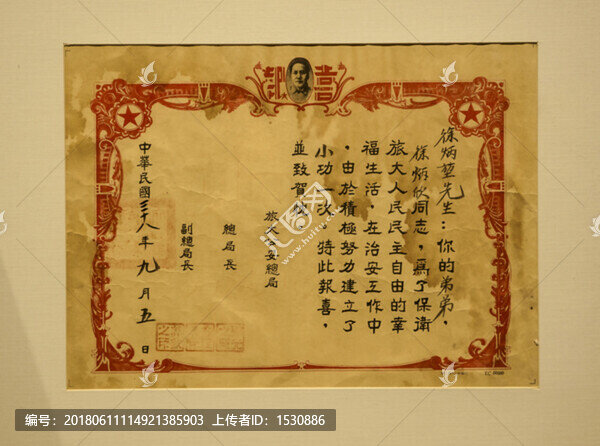 喜報
徐炳堃先生：你的弟弟，
徐炳欣同志，為了保衛
旅大人民民主自由的幸
福生活，在治安工作中
，由於積極努力建立了
小功一次，特此報喜，
並致賀忱。
旅大公安總局
總局長
副總局長
中華民國三十八年九月五日
汇图网
huitu.com
编号：20180611114921385903 上传者ID：1530886